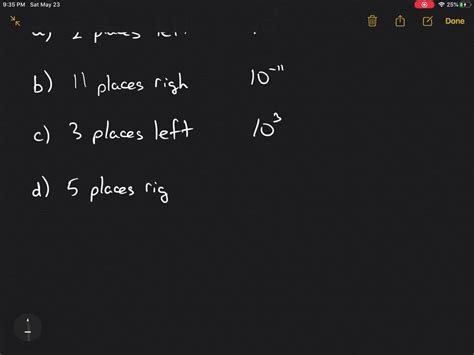 9:35 PM Sat May 23 25%
Done
b) 11 places righ 10⁻¹¹
c) 3 places left 10³
d) 5 places rig